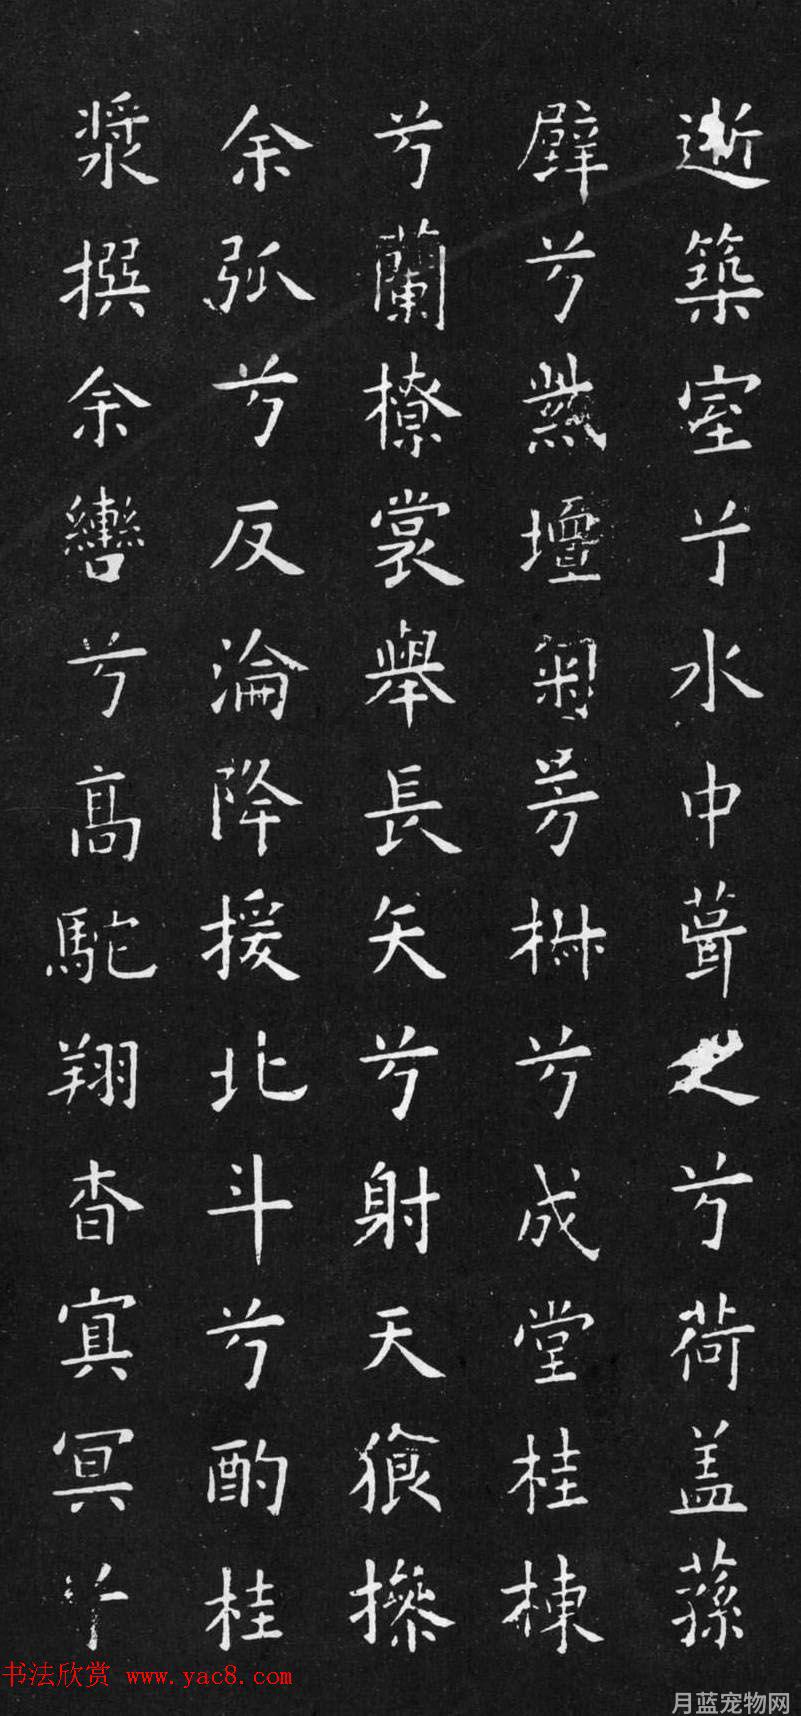 逝築室兮水中葺之兮荷盖蓀
壁兮紫壇匊芳椒兮成堂桂棟
兮蘭橑裳舉長矢兮射天狼操
余弧兮反淪降援北斗兮酌桂
漿撰余轡兮高駝翔杳冥冥兮
书法欣赏 www.yac8.com
月蓝宠物网